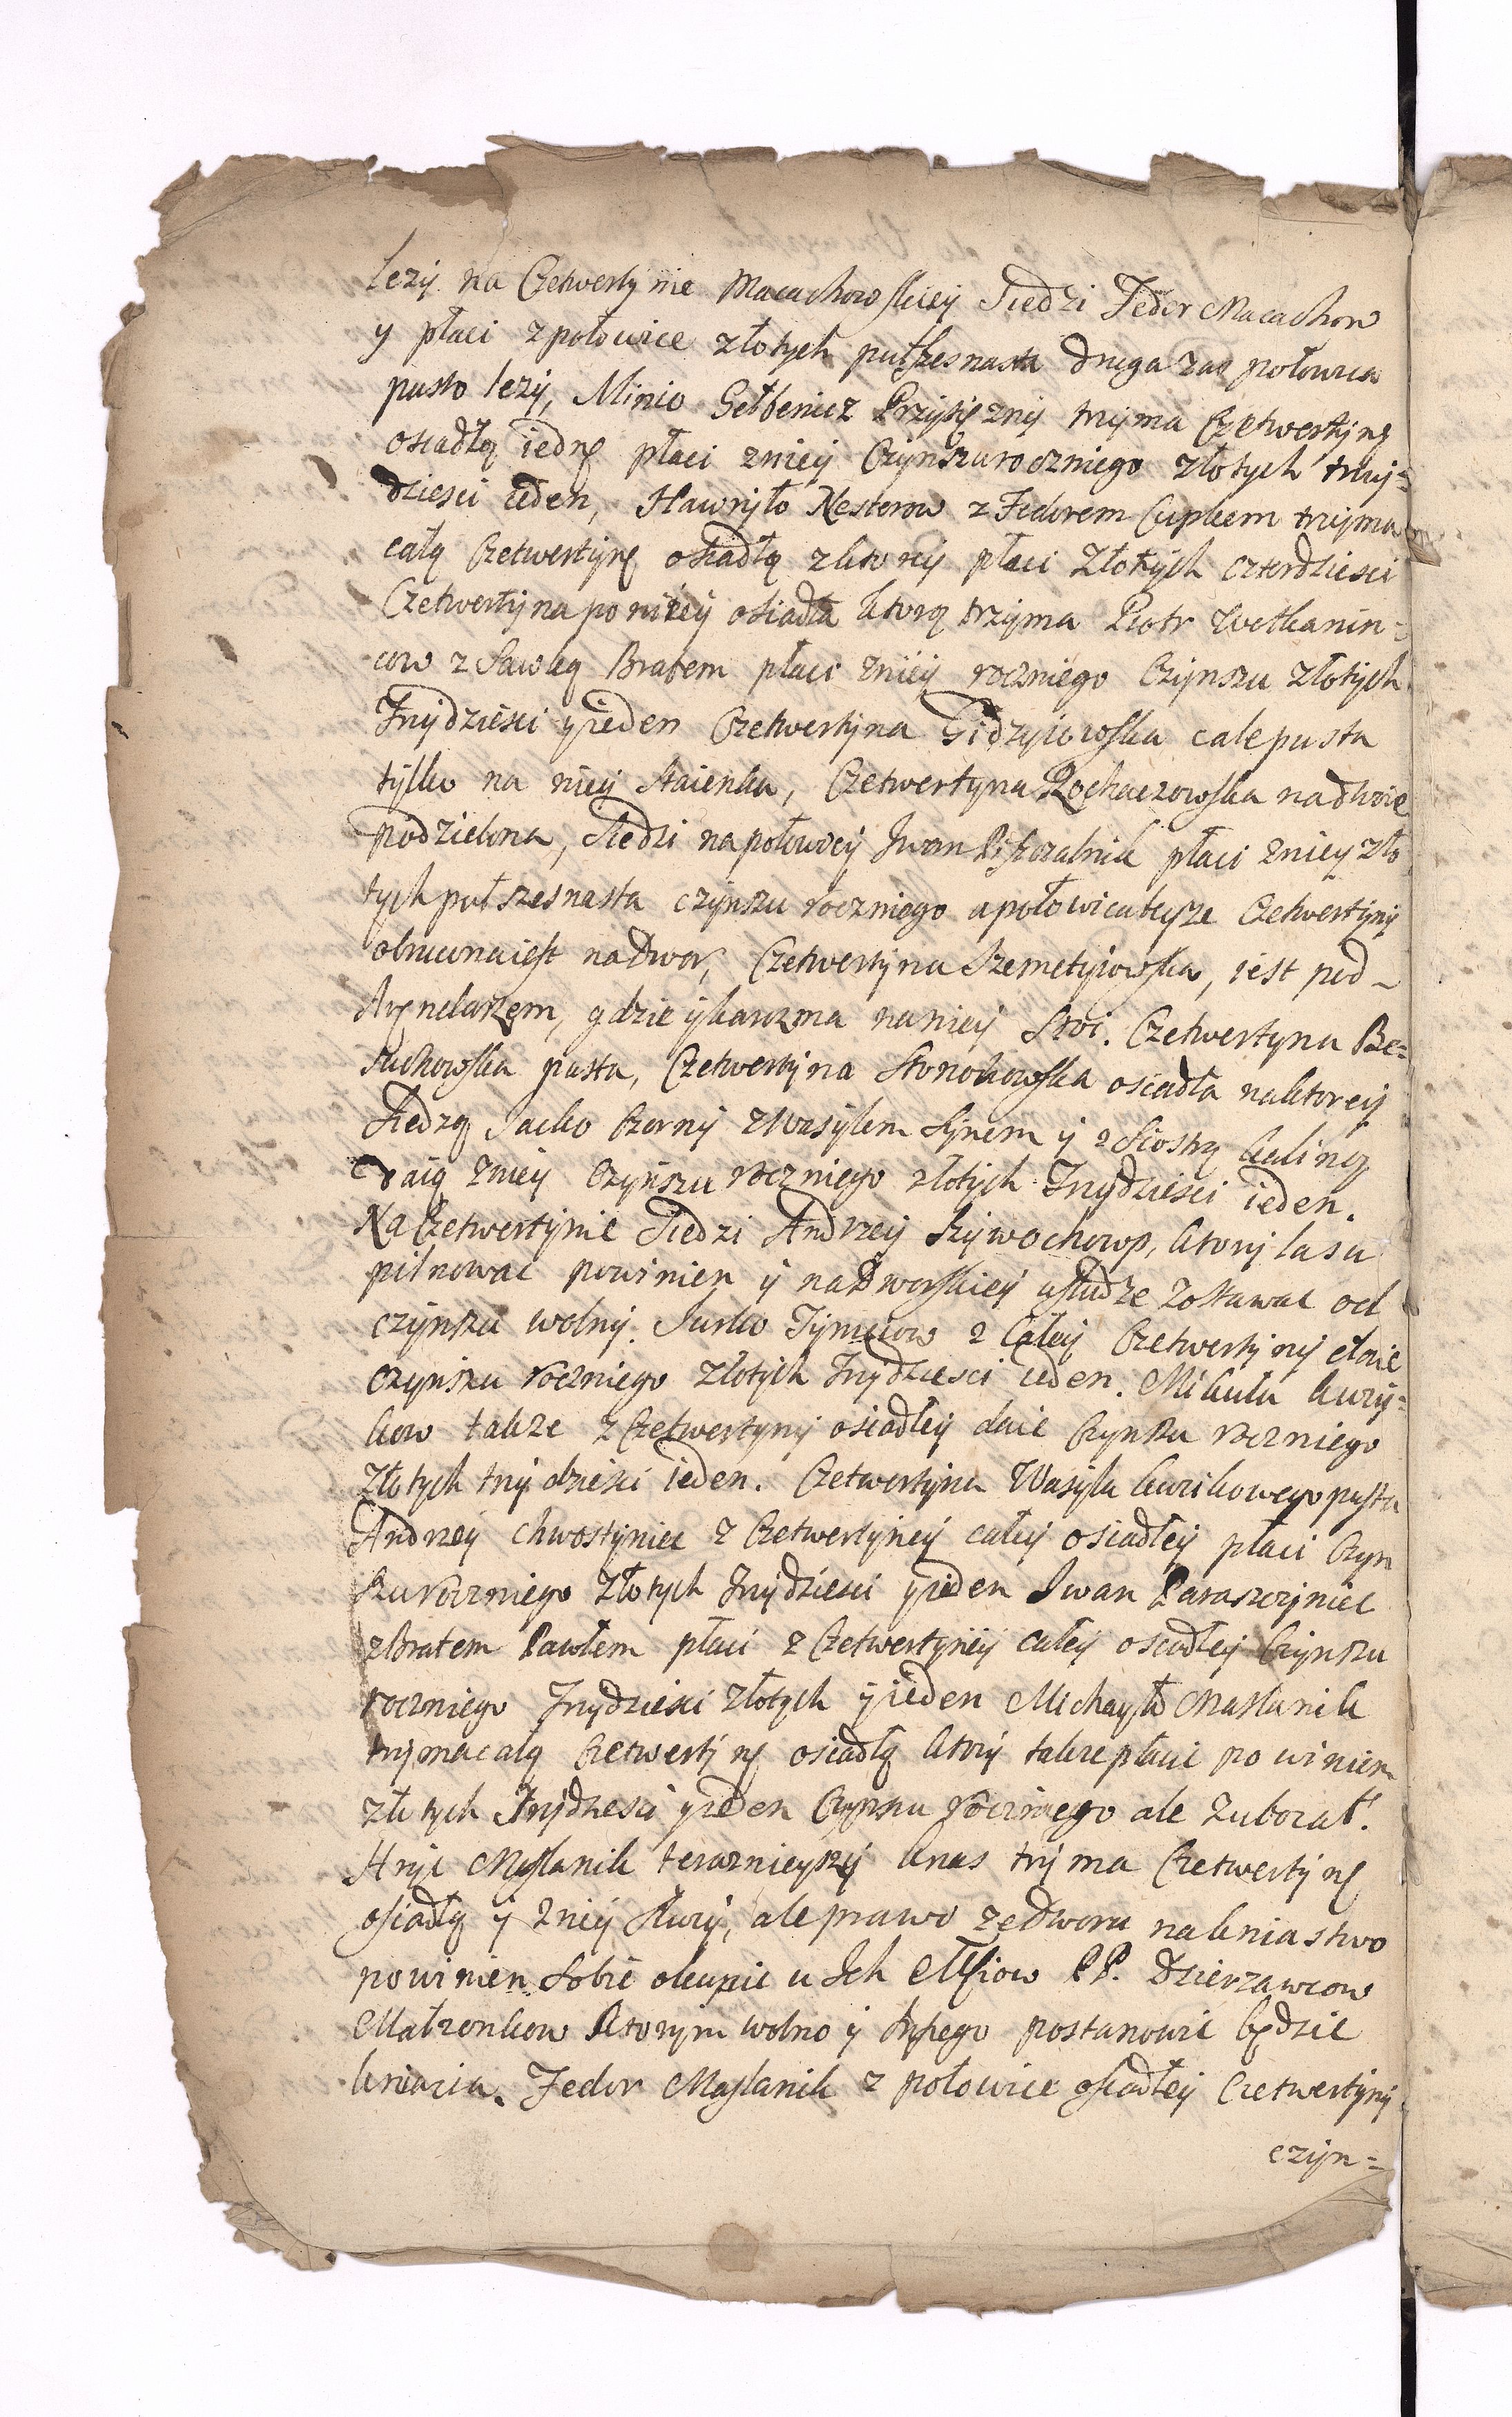 leży na Czetwertynie Macachowskiey Siedzi Fedor Macachow
y płaci z połowice złotych pułszesnasta druga zas połowica
pusto leży, Minio Gełbenicz Przysiężny trzyma Czetwertynę
osiadłą iednę płaci zniey Czynszu roczniego złotych trzy=
dziesci ieden, Hawryło Nesterow z Fedorem Cupkem trzyma
całą Czetwertynę osiadłą z ktorey płaci Złotych czterdziesci
Czetwertyna poniżey osiadła ktorą trzyma Piotr Wetkanin=
cow z Sawką Bratem płaci zniey roczniego Czynszu złotych
Trzydziesci y ieden Czetwertyna Gidzyiowska cale pusta
tylko na niey Staienka, Czetwertyna Rochaczowska na dwoie
podzielona, Siedzi na połowicy Iwan Piszczalnik płaci zniey zło
tych pułszesnasta czynszu roczniego a połowica teyże Czetwertyny
obrucona iest na Dwor, Czetwertyna Szemetyiowska, iest pod
Aręndarzem, gdzie y karczma na niey Stoi. Czetwertyna Be=
suchowska pusta, Czetwertyna Stonohowska osiadła na ktorey
Siedzą Iacko Czorny z Wasylem Synem y z Siostrą Kaliną
Daią zniey Czynszu roczniego złotych Trzydziesci ieden.
Na Czetwertynie Siedzi Andrzey Szywochowp, ktory lasu
pilnowac powinien y na Dworskiey usłudze zostawac od
czynszu wolny. Iurko Tymciow z Całey Czetwertyny daie
czynszu roczniego Złotych Trzydziesci ieden. Mikuła Kury=
kow takze z Czetwertyny osiadłey daie Czynszu roczniego
Złotych trzydziesci ieden. Czetwertyna Wasyla Kurikowego pusta
Andrzey Chwostyniec z Czetwertyney całey osiadłey płaci Czyn
szu roczniego Złotych Trzydziesci y ieden Iwan Paraszczyniec
z Bratem Pawłem płaci z Czetwertyney całey osiadłey Czynszu
roczniego Trzydziesci złotych y ieden Michayło Maslanik
trzyma całą Czetwertynę osiadłą ktory takze płacic powinien
złotych Trzydziesci y ieden Czynszu roczniego ale zubożał.
Hryc Maslanik teraznieyszy knas trzyma Czetwertynę
osiadłą y zniey Służy, ale prawo ze Dworu na kniastwo
powinien Sobie okupic u Ich Mściow PP. Dzierzawcow
Małżonkow Ktorym wolno y inszego postanowic będzie
kniazia. Fedor Maslanik z połowice osiadłey Czetwertyny
czyn=